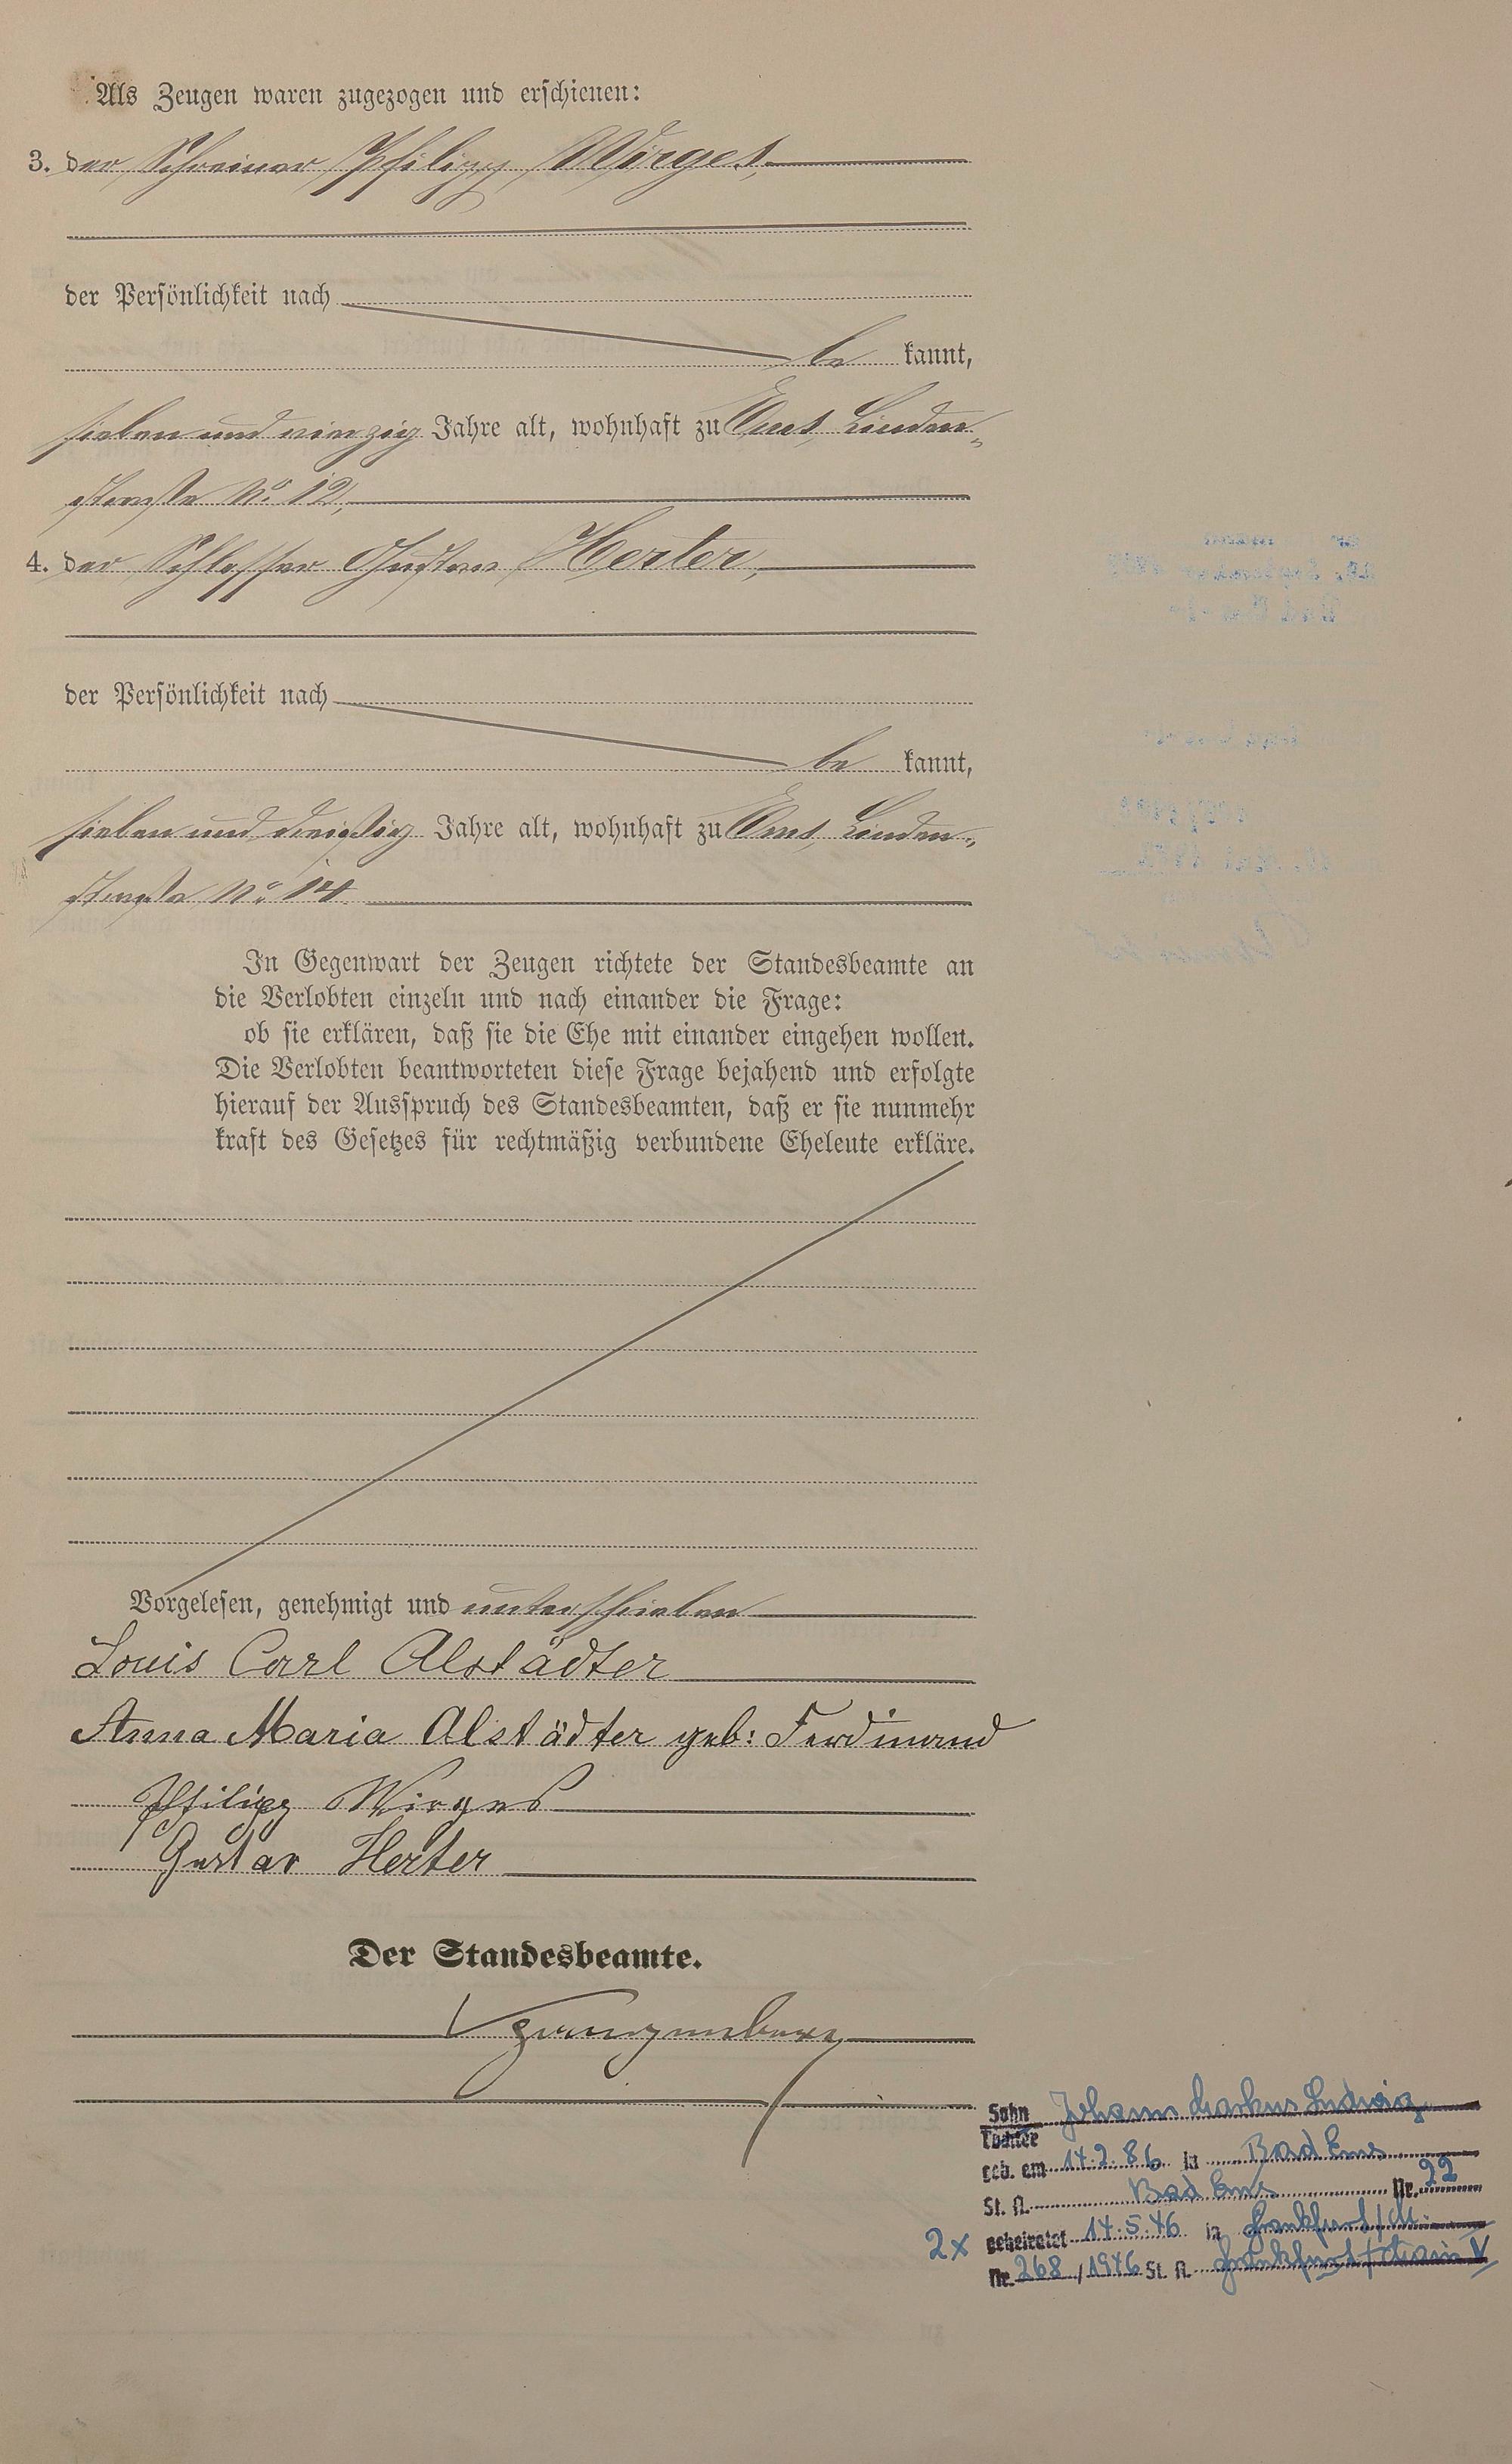 Als Zeugen waren zugezogen und erschienen:
3. der Schreiner Philipp Wirges,
der Persönlichkeit nach
be kannt,
sieben und vierzig Jahre alt, wohnhaft zu Ems, Linden-
straße No. 12,
4. der Schlosser Gustav Herter,
der Persönlichkeit nach
be kannt,
sieben und dreißig Jahre alt, wohnhaft zu Ems, Linden-
straße No. 14.
In Gegenwart der Zeugen richtete der Standesbeamte an
die Verlobten einzeln und nach einander die Frage:
ob sie erklären, daß sie die Ehe mit einander eingehen wollen.
Die Verlobten beantworteten diese Frage bejahend und erfolgte
hierauf der Ausspruch des Standesbeamten, daß er sie nunmehr
kraft des Gesetzes für rechtmäßig verbundene Eheleute erkläre.
Vorgelesen, genehmigt und unterschrieben
Louis Carl Alstädter
Anna Maria Alstädter geb: Ferdinand
Philipp Wirges
Gustav Herter
Der Standesbeamte.
Sohn Johann Markus Ludwig
Tochter
geb. am 14.2.86 in Bad Ems
St. A. Bad Ems Nr. 22
2x geheiratet 14.5.46 in Frankfurt/M.
Nr. 268/1946 St. A. Frankfurt/Main V